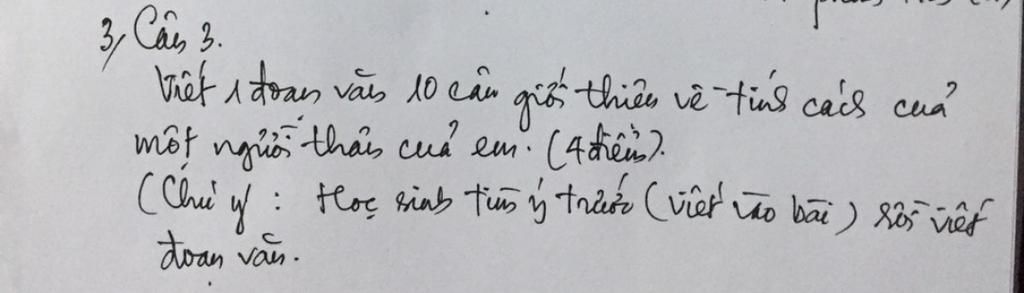 3, Câu 3.
Viết 1 đoạn văn 10 câu giới thiệu về tính cách của
một người thân của em. (4 điểm).
(Chú ý : Học sinh tìm ý trước (viết vào bài) rồi viết
đoạn văn.